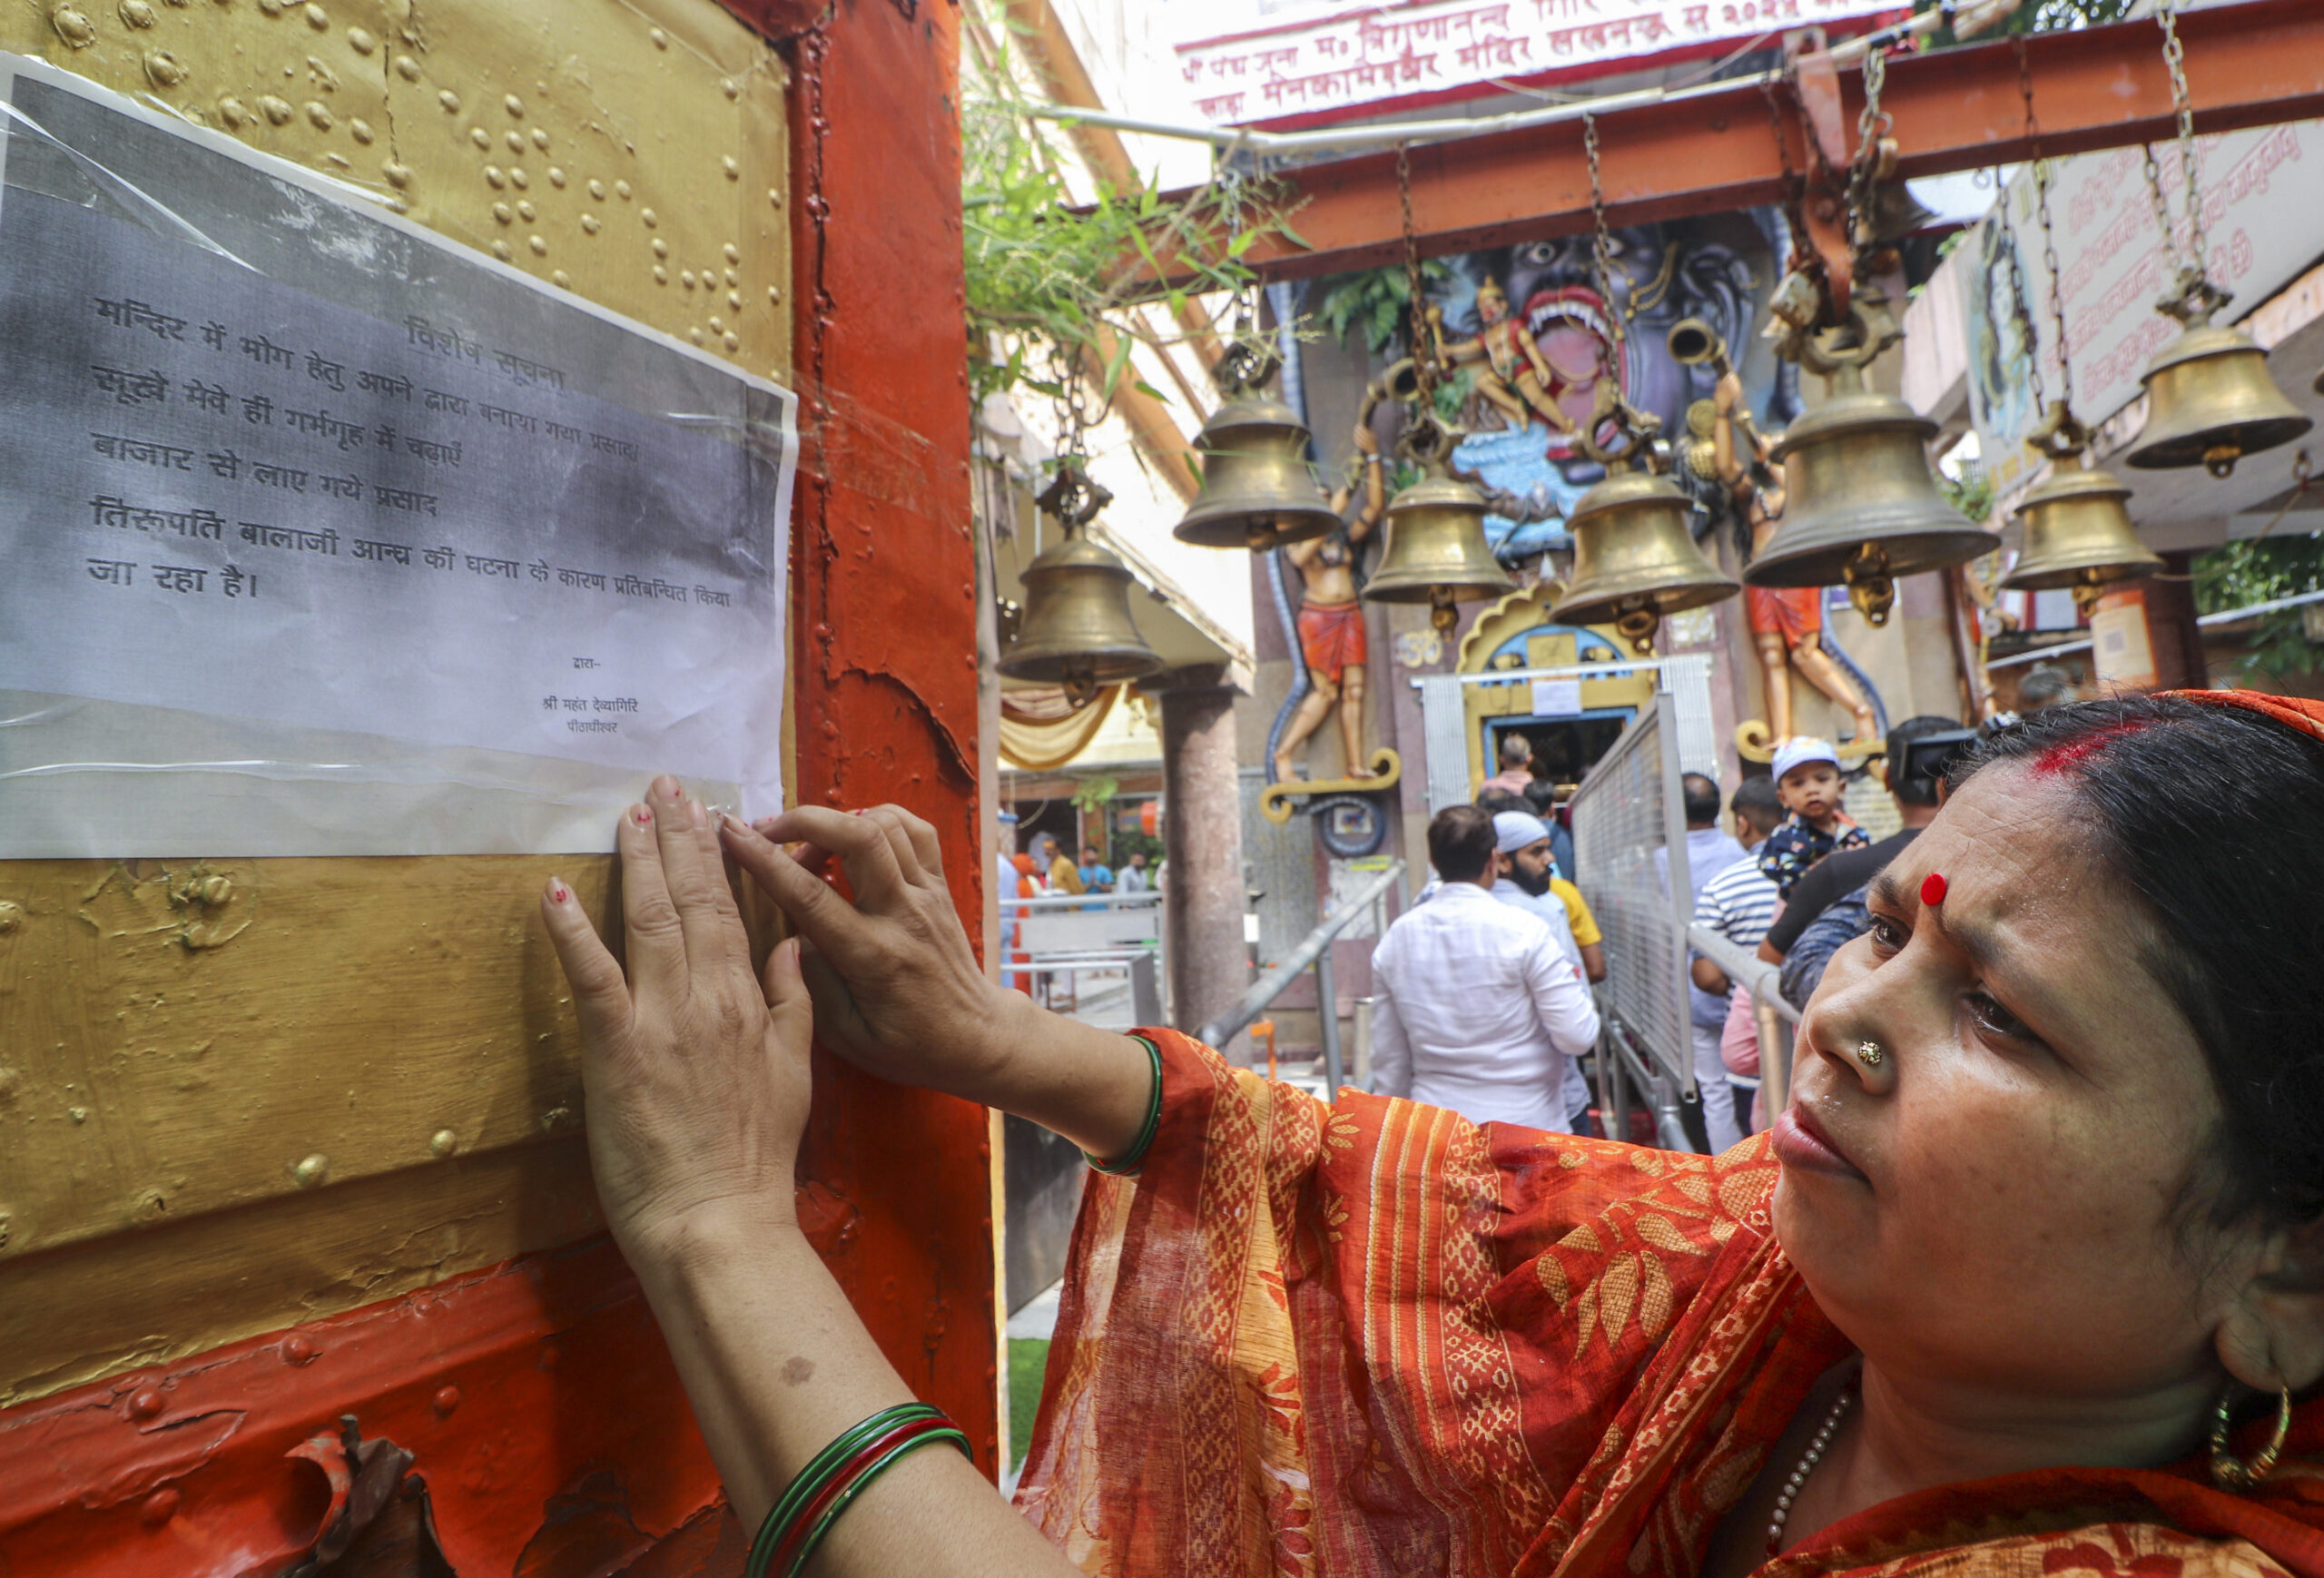 विशेष सूचना
मन्दिर में भोग हेतु अपने द्वारा बनाया गया प्रसाद/
सूखे मेवे ही गर्मगृह में चढ़ाएँ
बाजार से लाए गये प्रसाद
तिरूपति बालाजी आन्ध्र की घटना के कारण प्रतिबन्धित किया
जा रहा है।
द्वारा-
श्री महंत देव्यागिरि
पीठाधीश्वर
श्री पंच जूना म० त्रिगुणानन्द गिरि
मनकामेश्वर मंदिर लखनऊ